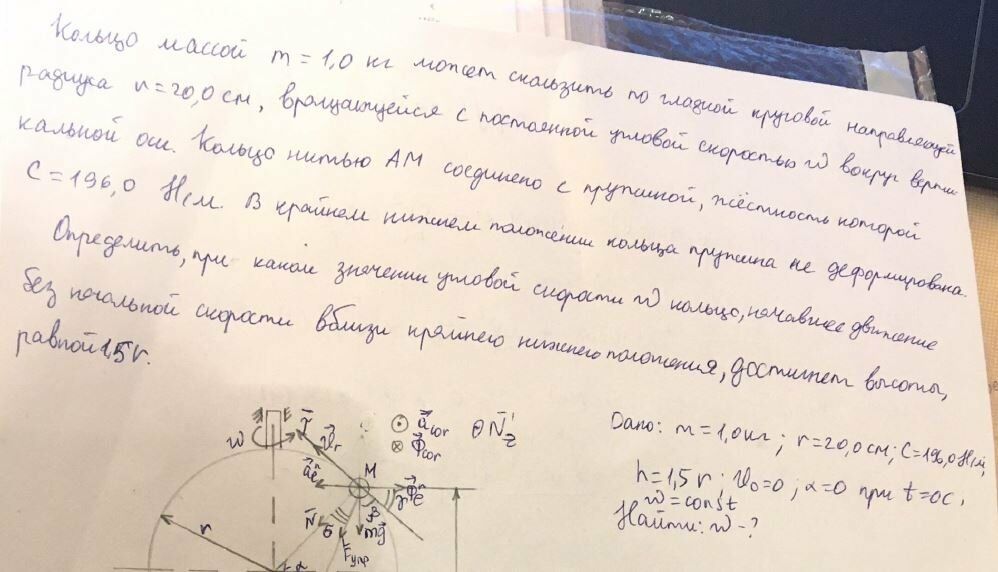 Кольцо массой m = 1,0 кг может скользить по гладкой круговой направляющей
радиуса r = 20,0 см, вращающейся с постоянной угловой скоростью ω вокруг верти-
кальной оси. Кольцо нитью AM соединено с пружиной, жёсткость которой
C = 196,0 Н/м. В крайнем нижнем положении кольца пружина не деформирована.
Определить, при каком значении угловой скорости ω кольцо, начавшее движение
без начальной скорости вблизи крайнего нижнего положения, достигнет высоты,
равной 1,5 r.
Дано: m = 1,0 кг; r = 20,0 см; C = 196,0 Н/м;
h = 1,5 r; V₀ = 0; α = 0 при t = 0 с,
ω = const
Найти: ω - ?
ω τ̄ V̄r ācor
Φ̄cor
N̄'z
āeⁿ M Φ̄eⁿ γ
N̄ б φ mḡ
F̄упр
r α